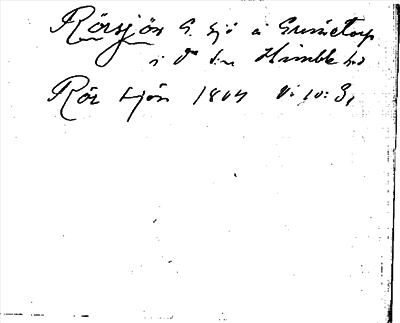 Rörsjön G. sjö å Grimetorp
i V Himble hd
Rör sjön 1804 V: 10: 3,